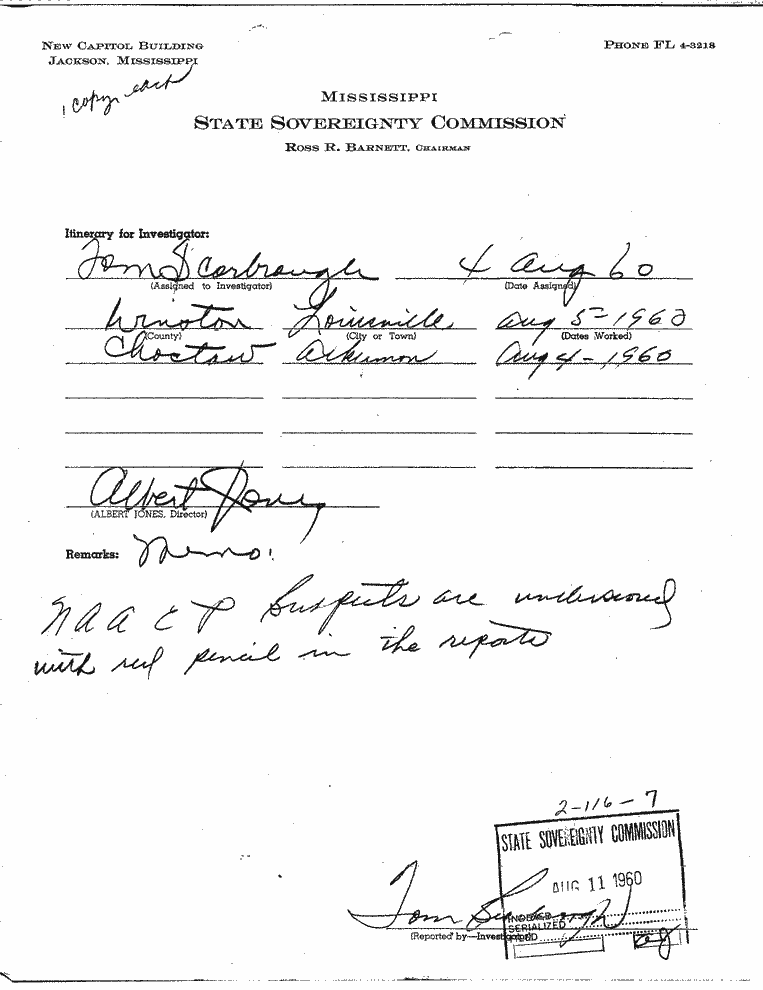 NEW CAPITOL BUILDING
JACKSON, MISSISSIPPI
PHONE FL 4-3218
1 copy each
MISSISSIPPI
STATE SOVEREIGNTY COMMISSION
ROSS R. BARNETT, CHAIRMAN
Itinerary for Investigator:
Tom Scarbrough 4 Aug 60
(Assigned to Investigator) (Date Assigned)
Winston Louisville Aug 5-1960
(County) (City or Town) (Dates Worked)
Choctaw Ackerman Aug 4-1960
Albert Jones
(ALBERT JONES, Director)
Remarks: Memo:
NAACP Suspects are underscored
with red pencil in the reports
2-116-7
STATE SOVEREIGNTY COMMISSION
AUG 11 1960
Tom Scarbrough
INDEXED
SERIALIZED
(Reported by—Investigator)